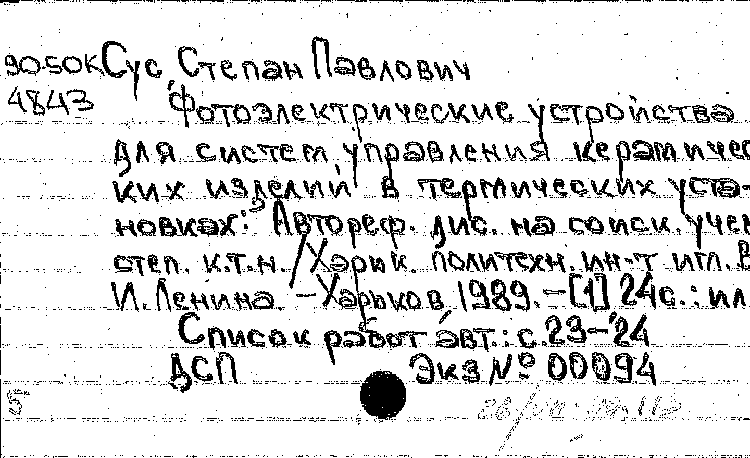 90-50К Сус, Степан Павлович
4843 Фотоэлектрические устройства
для систем управления керамичес
ких изделий в термических уста-
новках: Автореф. дис. на соиск. учен
степ. к.т.н. / Харьк. политехн. ин-т им. В
И. Ленина. – Харьков, 1989. – [1] 24с.: ил
Список работ авт.: с. 23–24
ДСП Экз № 00094
5